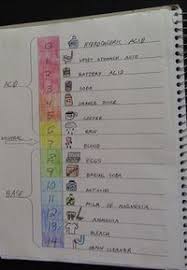 0 HYDROCHLORIC ACID
1 STOMACH ACID
2 BATTERY ACID
3 SODA
4 ORANGE JUICE
5 COFFEE
6 RAIN
7 BLOOD
8 EGGS
9 BAKING SODA
10 ANTACID
11 MILK OF MAGNESIA
12 AMMONIA
13 BLEACH
14 DRAIN CLEANER
ACID
NEUTRAL
BASE